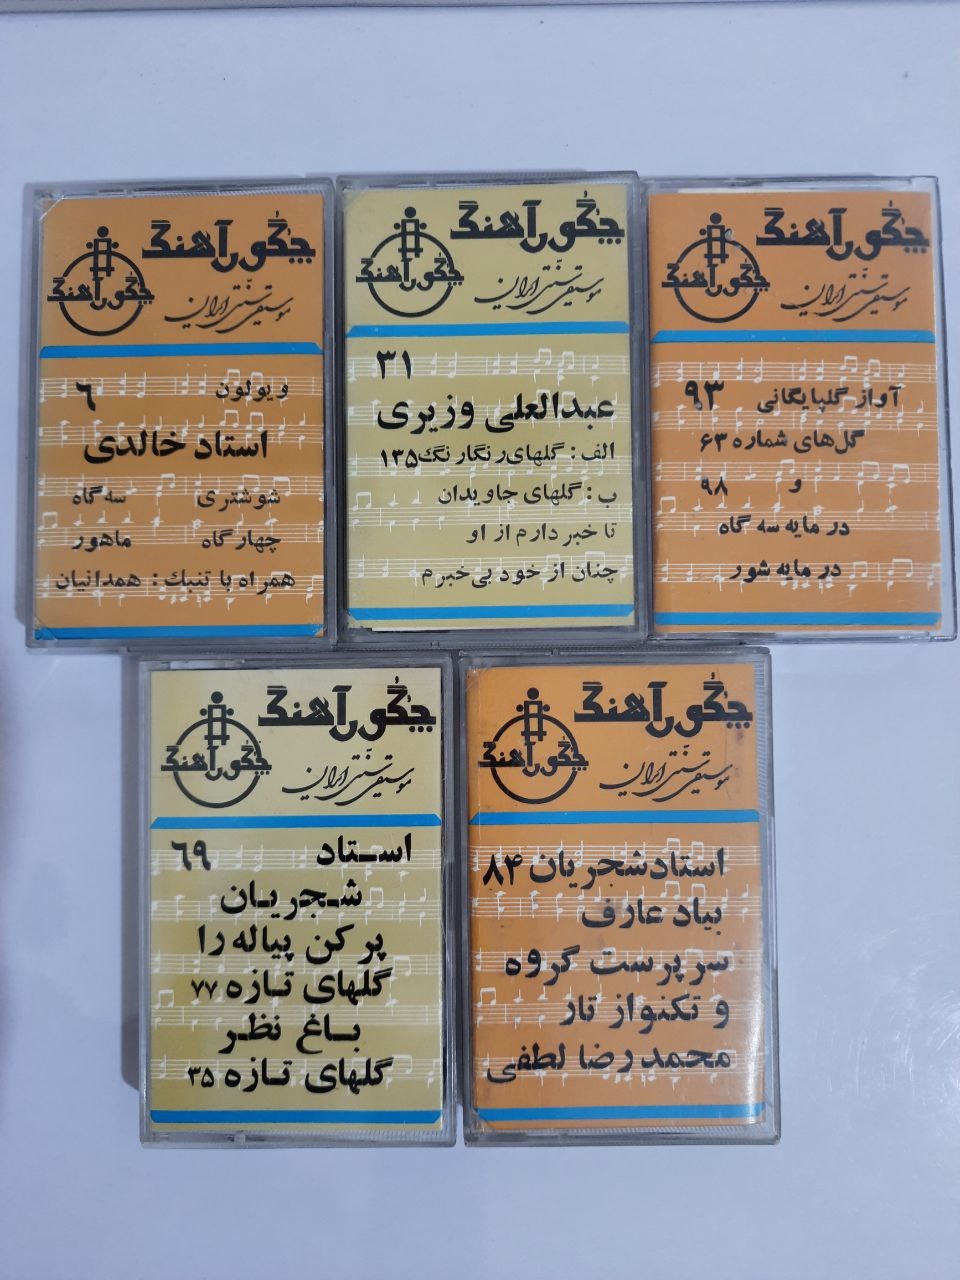 چگور آهنگ
چگور آهنگ
موسیقی سنتی ایران
ویولون ٦
استاد خالدی
شوشتری سه گاه
چهارگاه ماهور
همراه با تنبك : همدانیان
چگور آهنگ
چگور آهنگ
موسیقی سنتی ایران
۳۱
عبدالعلی وزیری
الف : گلهای رنگارنگ ۱۳۵
ب : گلهای جاویدان
تا خبر دارم از او
چنان از خود بی‌خبرم
چگور آهنگ
چگور آهنگ
موسیقی سنتی ایران
آواز گلپایگانی ۹۳
گل‌های شماره ۶۳
و ۹۸
در مایه سه گاه
در مایه شور
چگور آهنگ
چگور آهنگ
موسیقی سنتی ایران
استاد ٦٩
شجریان
پر کن پیاله را
گلهای تازه ۷۷
باغ نظر
گلهای تازه ۳۵
چگور آهنگ
چگور آهنگ
موسیقی سنتی ایران
استاد شجریان ۸۴
بیاد عارف
سرپرست گروه
و تکنواز تار
محمدرضا لطفی